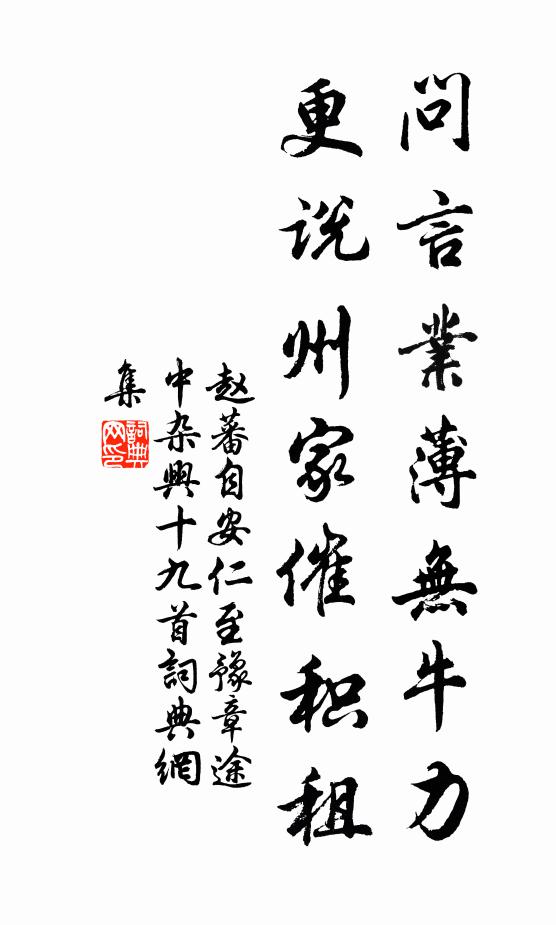 問言業薄無牛力
更说州家催积租
赵蕃自安仁至豫章途
中杂興十九首詞典網
集
詞典
网印